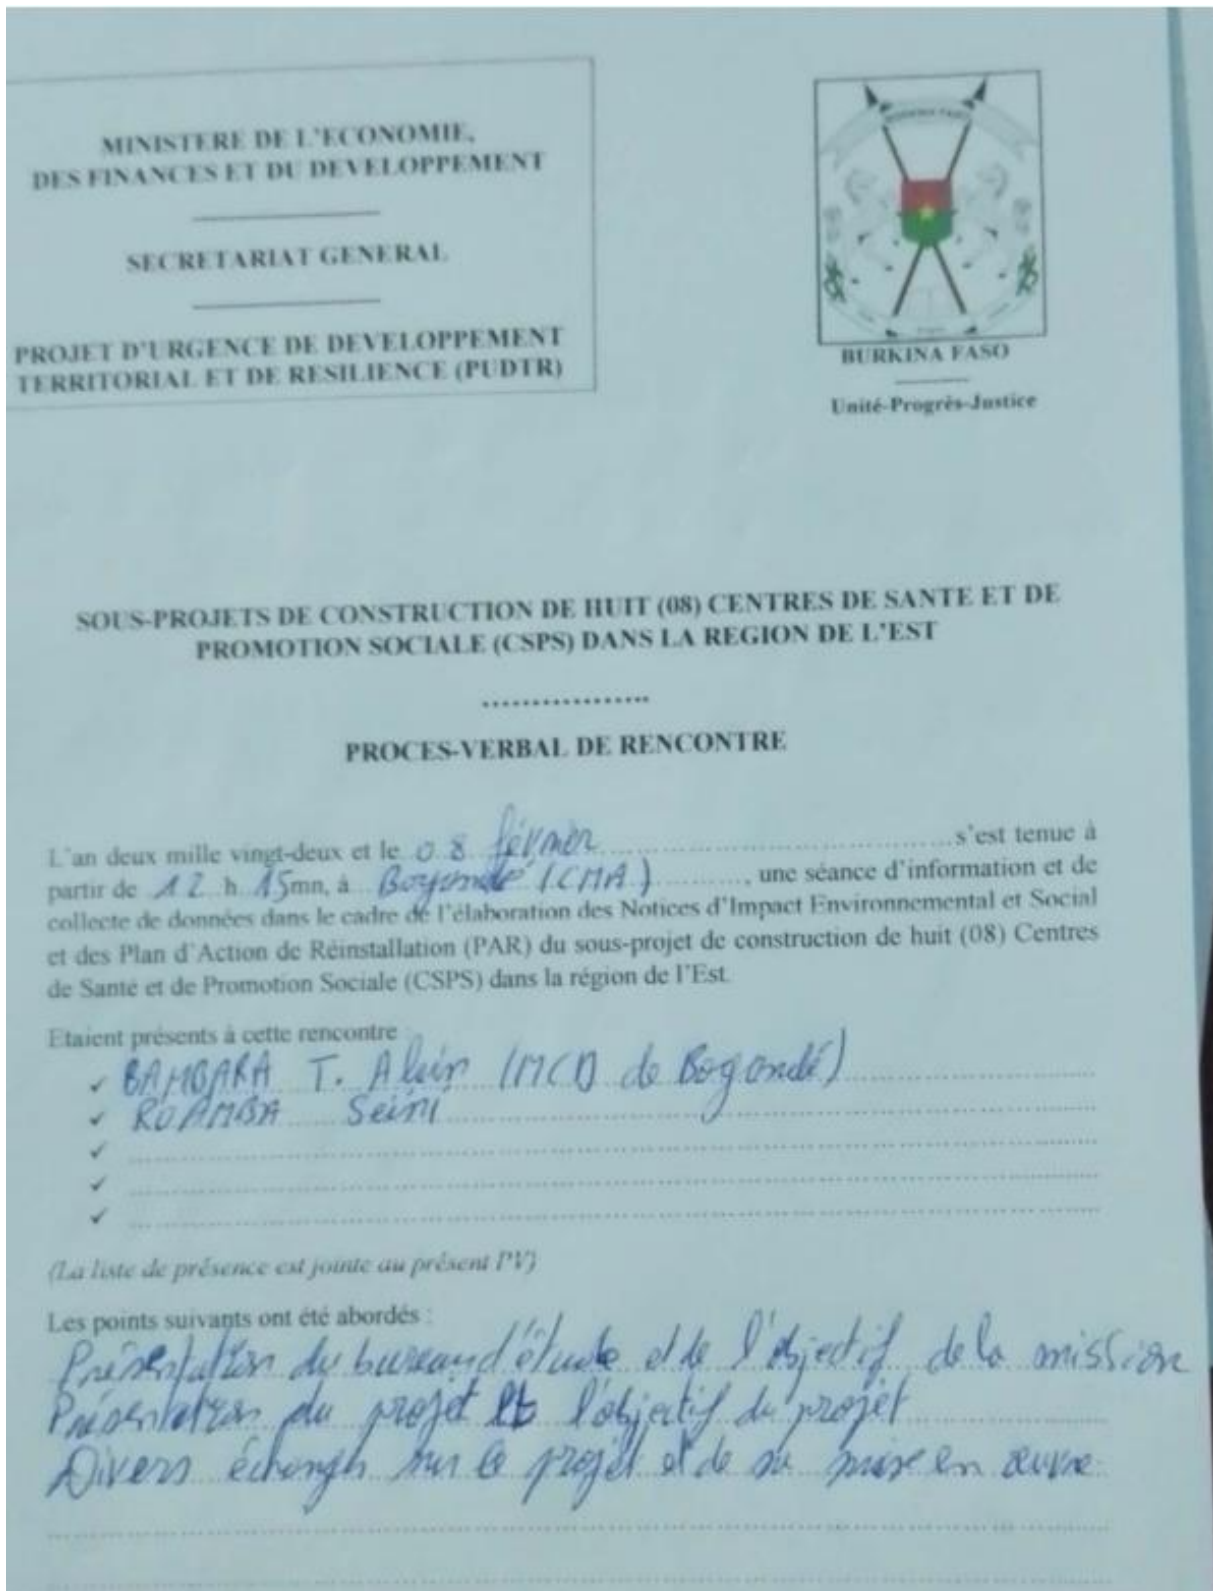 MINISTERE DE L'ECONOMIE,
DES FINANCES ET DU DEVELOPPEMENT
SECRETARIAT GENERAL
PROJET D'URGENCE DE DEVELOPPEMENT
TERRITORIAL ET DE RESILIENCE (PUDTR)
BURKINA FASO
BURKINA FASO
Unité-Progrès-Justice
SOUS-PROJETS DE CONSTRUCTION DE HUIT (08) CENTRES DE SANTE ET DE
PROMOTION SOCIALE (CSPS) DANS LA REGION DE L'EST
..................
PROCES-VERBAL DE RENCONTRE
L'an deux mille vingt-deux et le 08 février s'est tenue à
partir de 12 h 15mn, à Bogandé (CMA), une séance d'information et de
collecte de données dans le cadre de l'élaboration des Notices d'Impact Environnemental et Social
et des Plan d'Action de Réinstallation (PAR) du sous-projet de construction de huit (08) Centres
de Santé et de Promotion Sociale (CSPS) dans la région de l'Est.
Etaient présents à cette rencontre
✓ BAMBARA T. Alain (MCD de Bogandé)
✓ ROAMBA Seini
✓
✓
✓
(La liste de présence est jointe au présent PV)
Les points suivants ont été abordés :
Présentation du bureau d'étude et de l'objectif de la mission
Présentation du projet et l'objectif du projet
Divers échanges sur le projet et de sa mise en œuvre